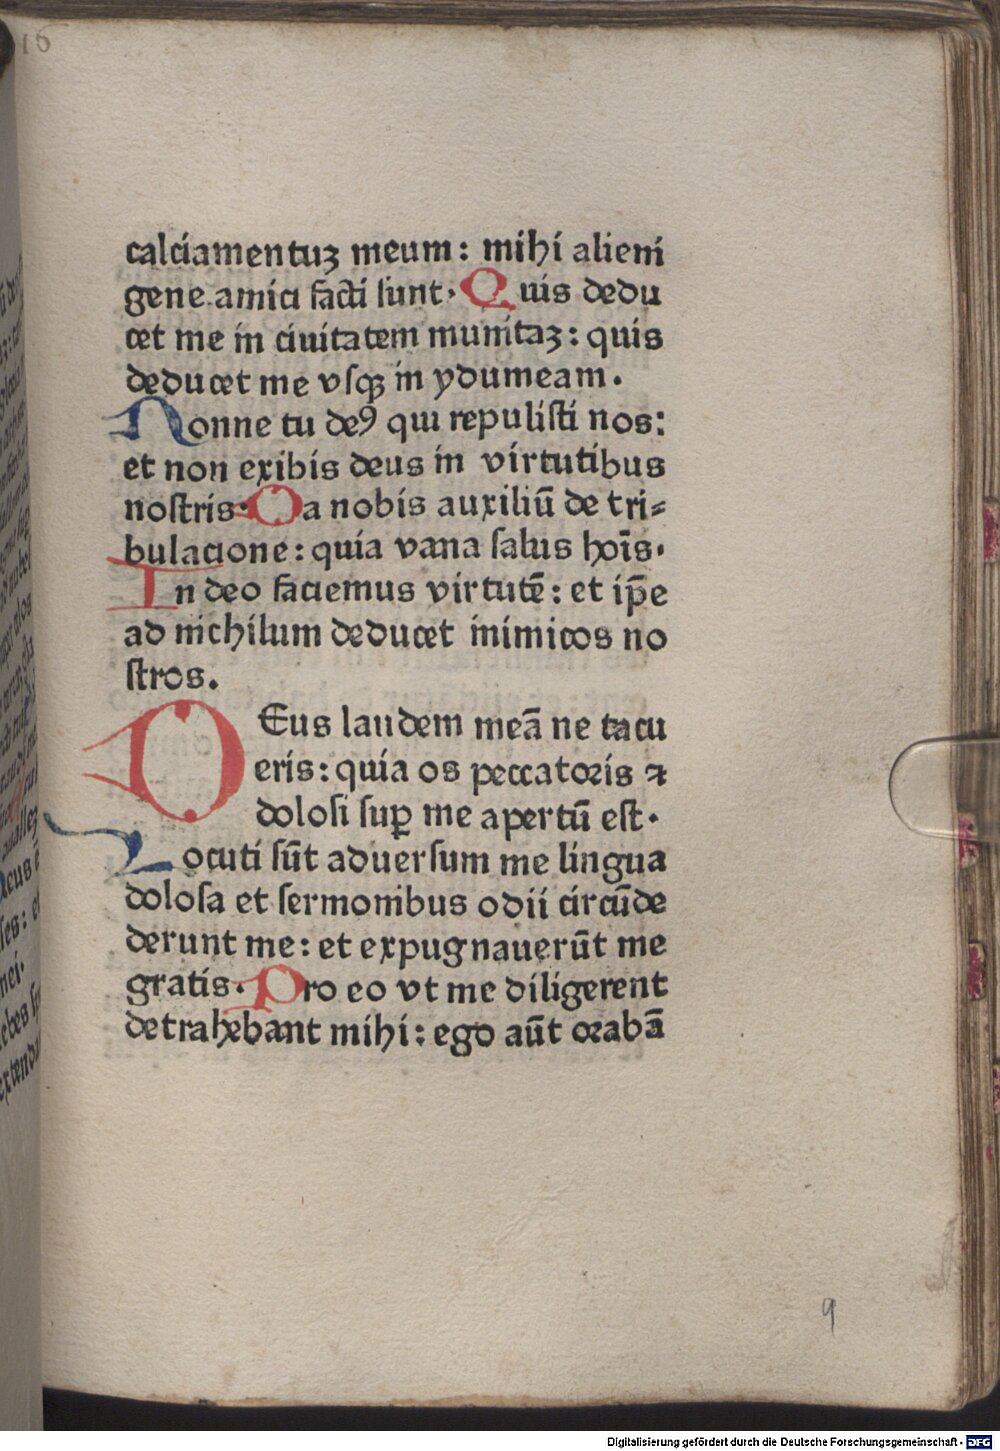 16
calciamentuꝫ meum: mihi alieni
gene amici facti ſunt. Quis dedu
cet me in ciuitatem munitaꝫ: quis
deducet me vſqꝫ in ydumeam.
Nonne tu deꝰ qui repuliſti nos:
et non exibis deus in virtutibus
noſtris. Da nobis auxiliū de tri⸗
bulacione: quia vana ſalus hoīs.
In deo faciemus virtutē: et ip̄e
ad nichilum deducet inimicos no
ſtros.
DEus laudem meā ne tacu
eris: quia os peccatoꝛis ⁊
doloſi ſuꝑ me apertū eſt.
Locuti ſūt aduerſum me lingua
doloſa et ſermonibus odii circūde
derunt me: et expugnauerūt me
gratis. Pro eo vt me diligerent
detrahebant mihi: ego aūt oꝛabā
9
Digitalisierung gefördert durch die Deutsche Forschungsgemeinschaft - DFG